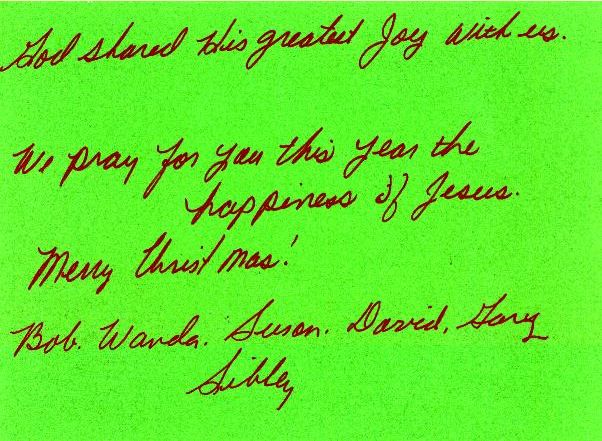 God shared His greatest Joy with us.
We pray for you this year the
happiness of Jesus.
Merry Christmas!
Bob. Wanda. Susan. David, Gary
Sibley